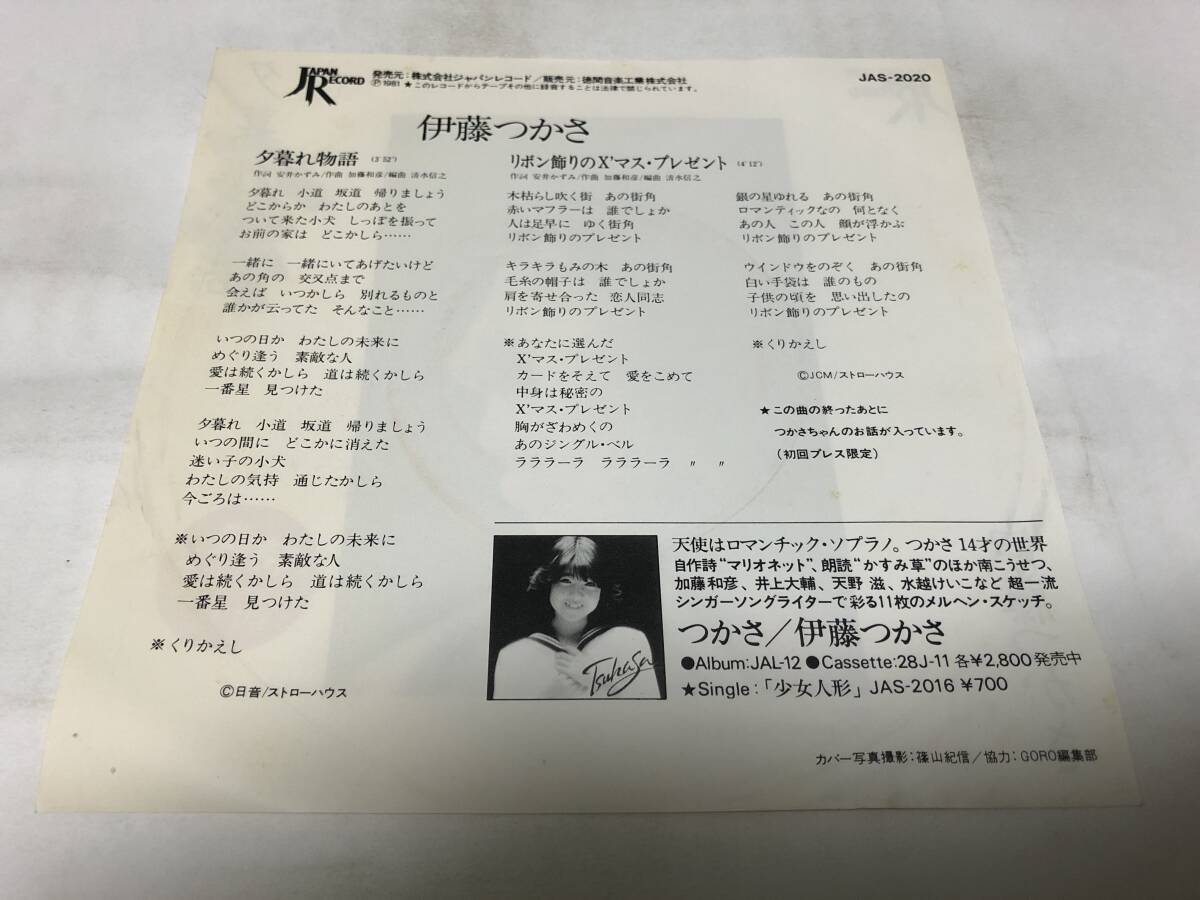 JAPAN RECORD
発売元：株式会社ジャパンレコード／販売元：徳間音楽工業株式会社
Ⓟ1981 ★このレコードからテープその他に録音することは法律で禁じられています。
JAS-2020
伊藤つかさ
夕暮れ物語 (3'52")
作詞 安井かずみ/作曲 加藤和彦/編曲 清水信之
夕暮れ 小道 坂道 帰りましょう
どこからか わたしのあとを
ついて来た小犬 しっぽを振って
お前の家は どこかしら……
一緒に 一緒にいてあげたいけど
あの角の 交叉点まで
会えば いつかしら 別れるものと
誰かが云ってた そんなこと……
いつの日か わたしの未来に
めぐり逢う 素敵な人
愛は続くかしら 道は続くかしら
一番星 見つけた
夕暮れ 小道 坂道 帰りましょう
いつの間に どこかに消えた
迷い子の小犬
わたしの気持 通じたかしら
今ごろは……
※いつの日か わたしの未来に
めぐり逢う 素敵な人
愛は続くかしら 道は続くかしら
一番星 見つけた
※くりかえし
Ⓒ日音/ストローハウス
リボン飾りのX'マス・プレゼント (4'12")
作詞 安井かずみ/作曲 加藤和彦/編曲 清水信之
木枯らし吹く街 あの街角
赤いマフラーは 誰でしょか
人は足早に ゆく街角
リボン飾りのプレゼント
キラキラもみの木 あの街角
毛糸の帽子は 誰でしょか
肩を寄せ合った 恋人同志
リボン飾りのプレゼント
※あなたに選んだ
X'マス・プレゼント
カードをそえて 愛をこめて
中身は秘密の
X'マス・プレゼント
胸がざわめくの
あのジングル・ベル
ラララーラ ラララーラ 〃 〃
銀の星ゆれる あの街角
ロマンティックなの 何となく
あの人 この人 顔が浮かぶ
リボン飾りのプレゼント
ウインドウをのぞく あの街角
白い手袋は 誰のもの
子供の頃を 思い出したの
リボン飾りのプレゼント
※くりかえし
ⒸJCM/ストローハウス
★この曲の終ったあとに
つかさちゃんのお話が入っています。
(初回プレス限定)
Tsukasa
天使はロマンチック・ソプラノ。つかさ14才の世界
自作詩“マリオネット”、朗読“かすみ草”のほか南こうせつ、
加藤和彦、井上大輔、天野 滋、水越けいこなど 超一流
シンガーソングライターで彩る11枚のメルヘン・スケッチ。
つかさ／伊藤つかさ
●Album:JAL-12 ●Cassette:28J-11 各¥2,800発売中
★Single:「少女人形」JAS-2016 ¥700
カバー写真撮影：篠山紀信／協力：GORO編集部